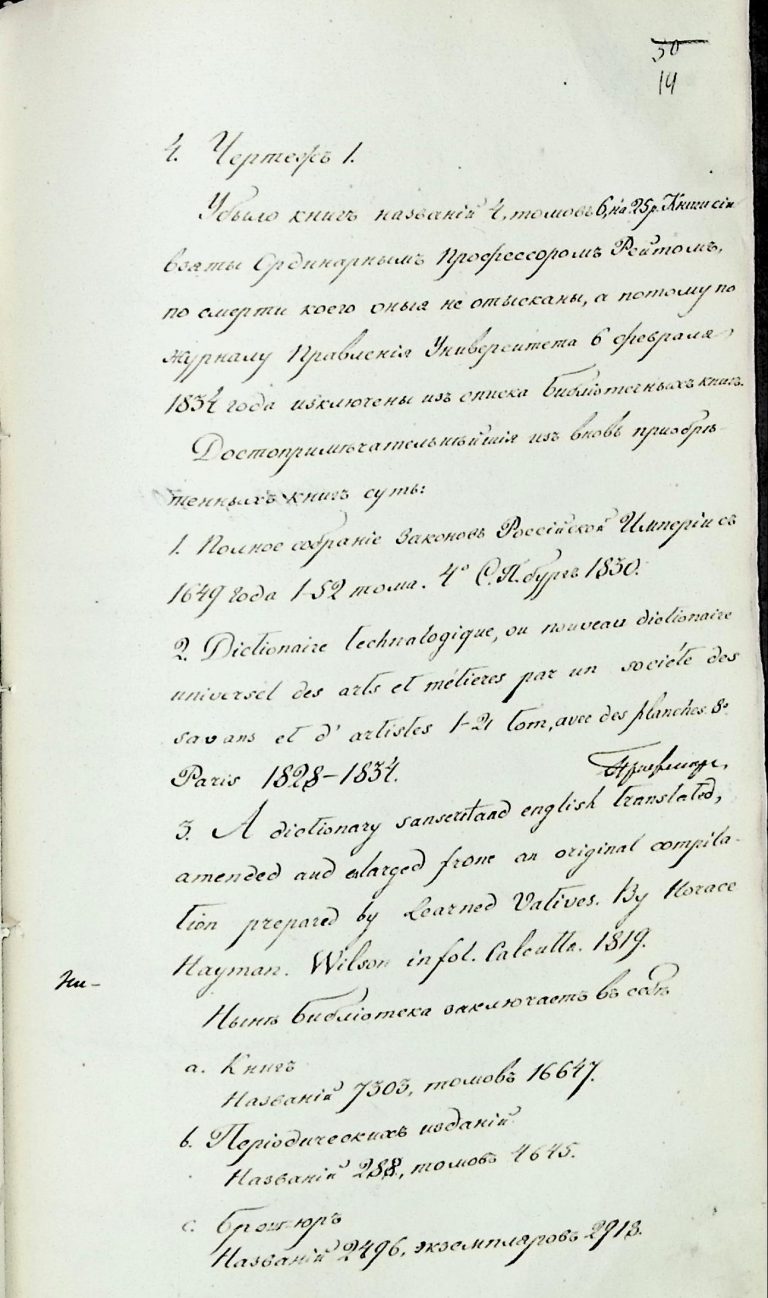 30
14
4. Чертежъ 1.
Убыло книгъ названій 4, томовъ 6, на 25 р. Книги сіи
взяты Ординарнымъ Профессоромъ Рейтомъ,
по смерти коего оныя не отысканы, а потому по
журналу Правленія Университета 6 февраля
1834 года изключены изъ списка библіотечныхъ книгъ.
Достопримѣчательнѣйшія изъ вновь пріобрѣ-
тенныхъ книгъ суть:
1. Полное собраніе Законовъ Россійской Имперіи съ
1649 года 1-52 тома. 4° С.П.бургъ 1830.
2. Dictionaire technalogique, ou nouveau dictionaire
universel des arts et métieres par un société des
savans et d'artistes 1-21 tom, avec des planches. 8°
Paris 1828-1834.
3. A dictionary sanscrit and english translated,
amended and enlarged frome an original compila-
tion prepared by Learned Natives. By Horace
Hayman. Wilson in fol. Calcutta. 1819.
Ны-
Нынѣ библіотека заключаетъ въ себѣ
a. Книгъ
Названій 7303, томовъ 16647.
b. Періодическихъ изданій
Названій 288, томовъ 4645.
c. Брошюръ
Названій 2496, экземпляровъ 2913.